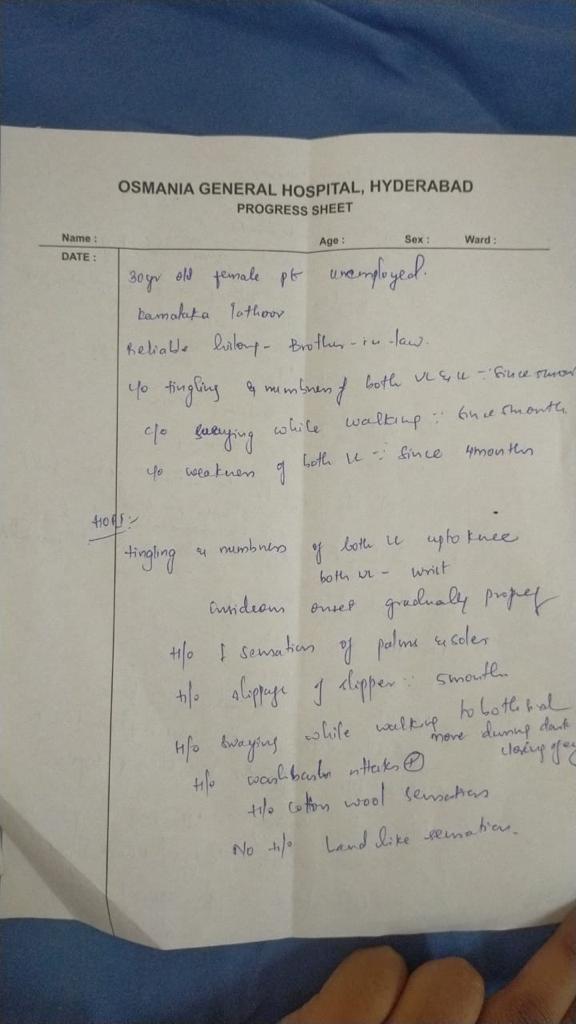 OSMANIA GENERAL HOSPITAL, HYDERABAD
PROGRESS SHEET
Name :
Age :
Sex :
Ward :
DATE :
30yr old female pt unemployed.
Reliable history - Brother-in-law.
c/o tingling & numbness of both UL & LL :- Since 5mon
c/o swaying while walking :- Since 5month
c/o weakness of both LL :- Since 4months
HOPI :-
tingling & numbness of both LL upto knee
both UL - wrist
onset gradually
H/o ↓ sensation of palms & soles
H/o slippage of slipper :- 5month
H/o swaying while walking to both
more during dark
closing of ey
H/o washbasin attacks ⊕
H/o cotton wool sensation
No H/o band like sensation.